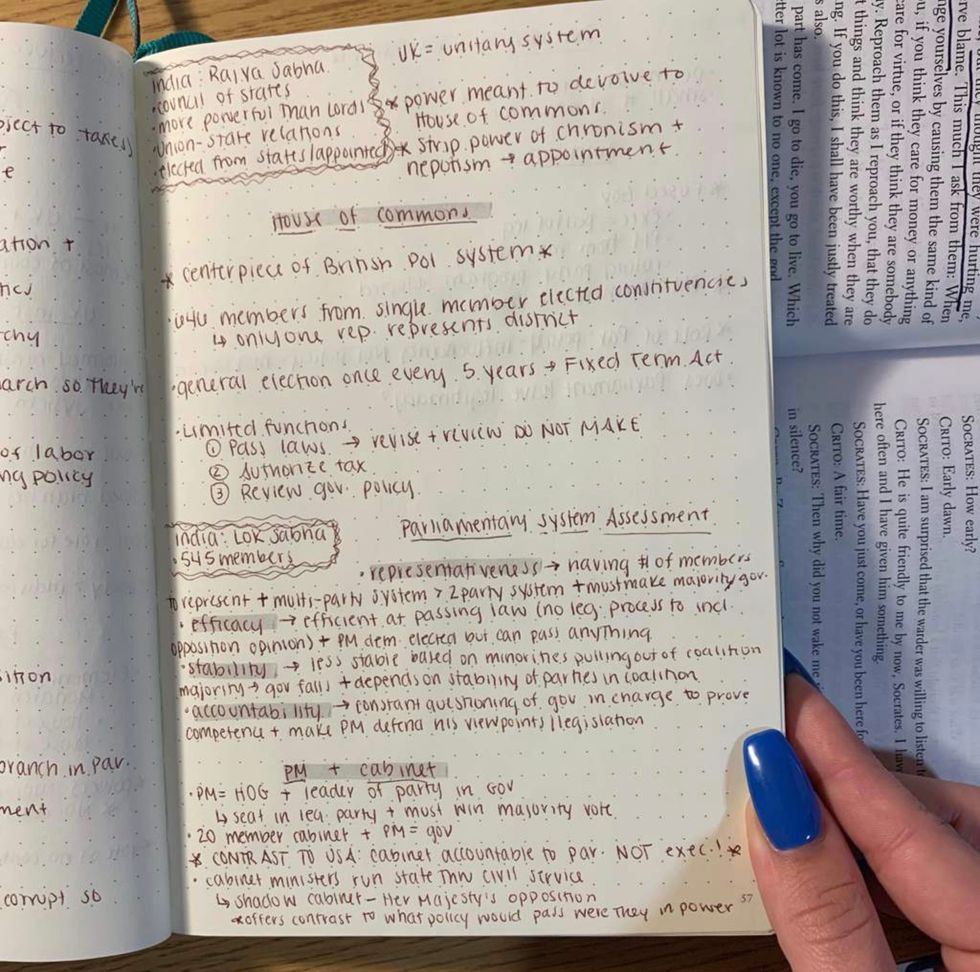 oject to taxes)
e
ation +
hy
arch so they're
of labor
ng policy
sition
branch in par.
ment
corrupt so
India: Rajya Sabha
·council of states
·more powerful than Lords
·union-state relations
·elected from states/appointed
UK = unitary system
* power meant to devolve to
House of commons.
* strip power of chronism +
nepotism → appointment
House of commons
* centerpiece of British Pol system *
·646 members from single member elected constituencies
↳ only one rep. represents district
·general election once every 5 years → Fixed Term Act
·Limited functions
① Pass laws → revise + review DO NOT MAKE
② Authorize tax
③ Review gov. policy
India: Lok Sabha
·545 members
Parliamentary System Assessment
·representativeness → having # of members
to represent + multi-party system > 2 party system + must make majority gov.
·efficacy → efficient at passing law (no leg. process to incl.
opposition opinion) + PM dem. elected but can pass anything
·stability → less stable based on minorities pulling out of coalition
majority → gov falls + depends on stability of parties in coalition
·accountability → constant questioning of gov in charge to prove
competence + make PM defend his viewpoints/legislation
PM + cabinet
·PM = HOG + leader of party in GOV
↳ seat in leg. party + must win majority vote
·20 member cabinet + PM = gov
* CONTRAST TO USA: cabinet accountable to par. NOT exec.! *
·cabinet ministers run state thru civil service
↳ shadow cabinet – Her Majesty's opposition
*offers contrast to what policy would pass were they in power
57
rve blame. This much I ask from them: When
nge yourselves by causing them the same kind of
u, if you think they care for money or anything
care for virtue, or if they think they are somebody
y. Reproach them as I reproach you, that they do
t things and think they are worthy when they are
ng. If you do this, I shall have been justly treated
s also.
part has come. I go to die, you go to live. Which
tter lot is known to no one, except the god
SOCRATES: How early?
CRITO: Early dawn.
SOCRATES: I am surprised that the warder was willing to listen
CRITO: He is quite friendly to me by now, Socrates. I have
here often and I have given him something.
SOCRATES: Have you just come, or have you been here fo
CRITO: A fair time.
SOCRATES: Then why did you not wake me
in silence?